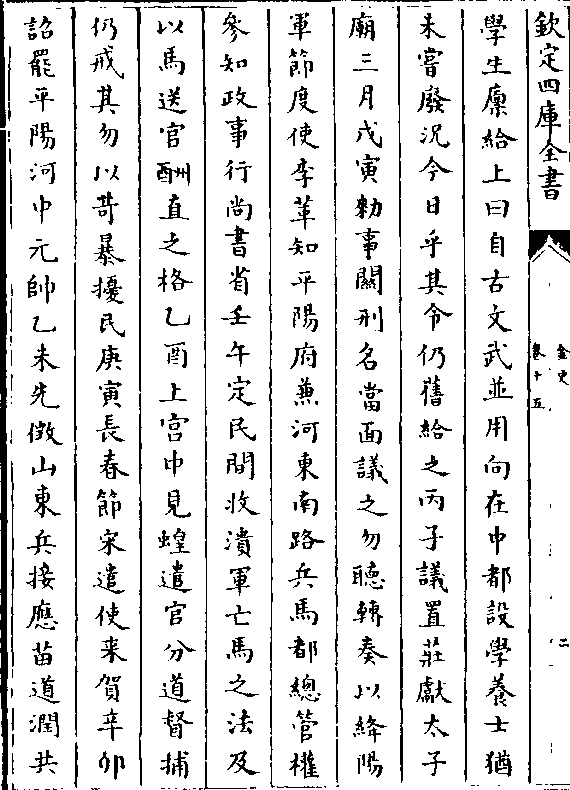 欽定四庫全書
金史
卷十五
二
學生廩給上曰自古文武並用向在中都設學養士猶
未嘗廢況今日乎其令仍舊給之丙子議置莊獻太子
廟三月戊寅勑事關刑名當面議之勿聽轉奏以絳陽
軍節度使李革知平陽府兼河東南路兵馬都總管權
參知政事行尚書省壬午定民間收潰軍亡馬之法及
以馬送官酬直之格乙酉上宮中見蝗遣官分道督捕
仍戒其勿以苛暴擾民庚寅長春節宋遣使来賀辛卯
詔罷平陽河中元帥乙未先徵山東兵接應苗道潤共